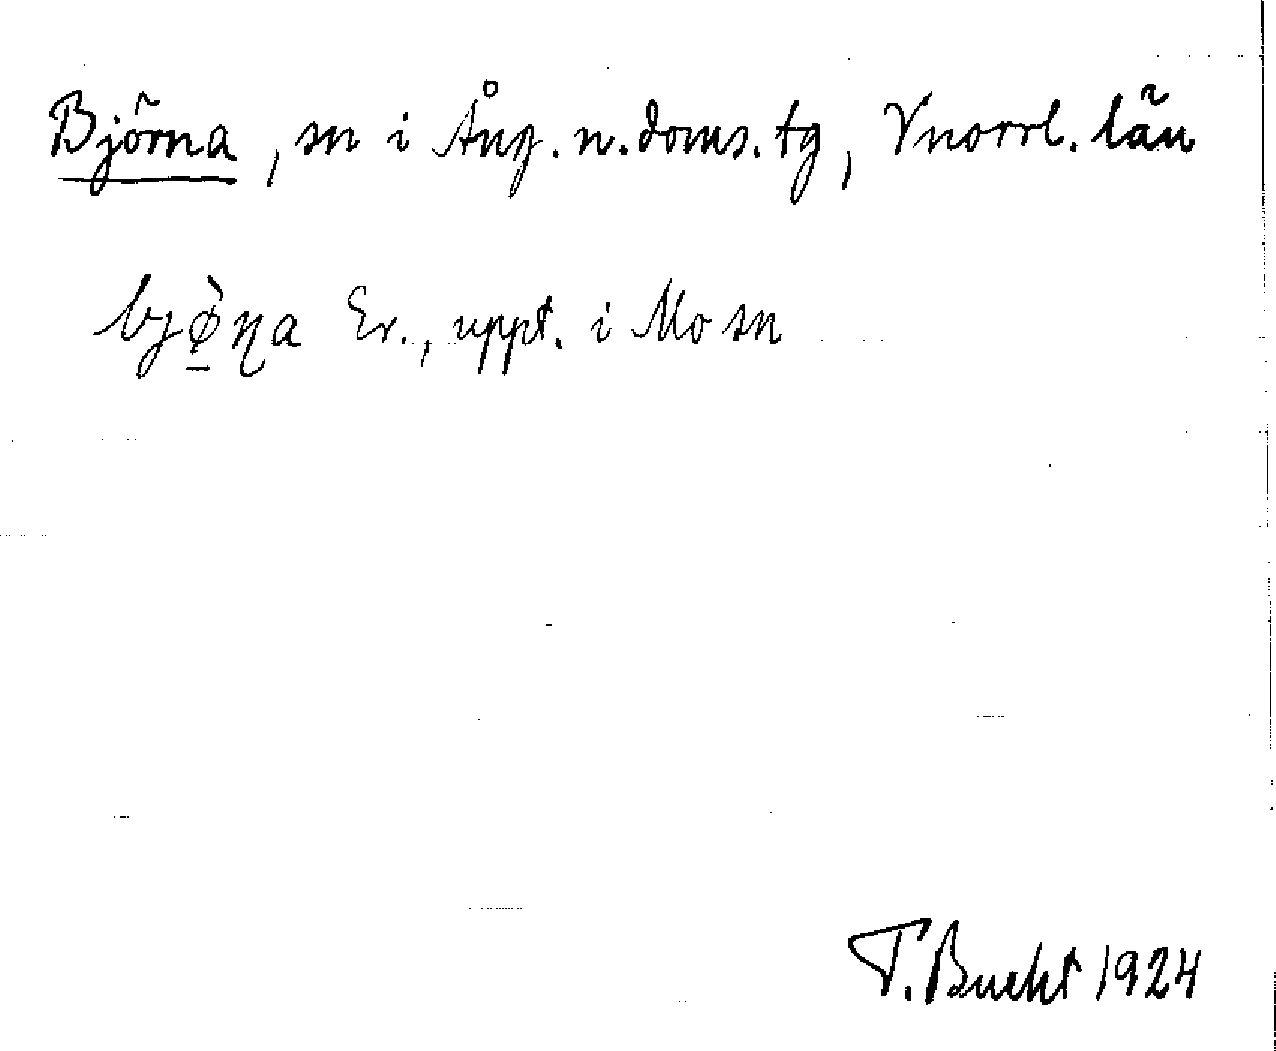 Björna, sn i Ång. n. doms. tg, Vnorrl. län
bjø̠̀ɳa Er., uppt. i Mo sn
T. Bucht 1924